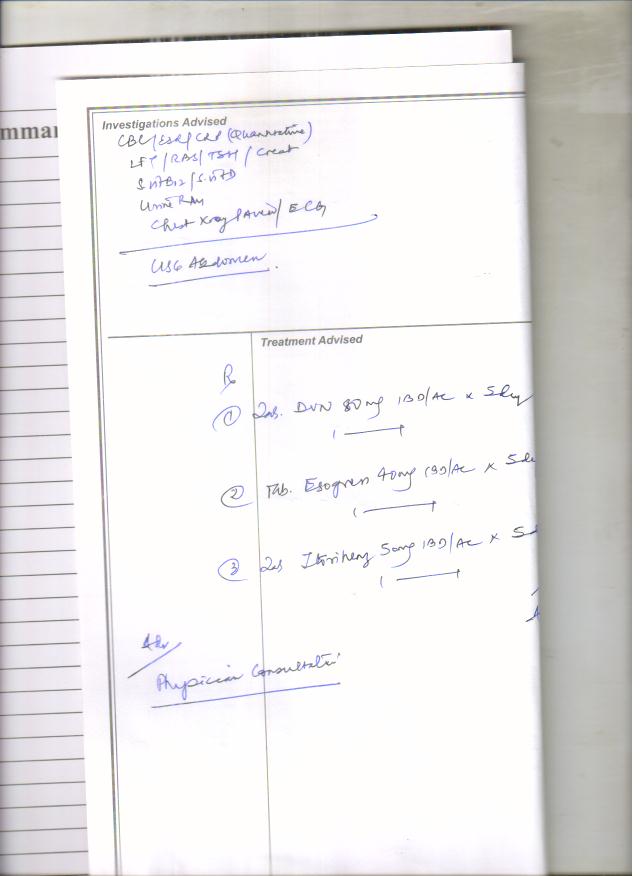 mmar
Investigations Advised
CBC/ESR/CRP (Quantitative)
LFT/RBS/TSH/Creat
S.VitB12/S.VitD
Urine R/M
Chest Xray PAview/ECG
USG Abdomen.
Treatment Advised
Rx
① Tab. 80mg 1BD/AC x 5day
② Tab. 40mg 1BD/AC x 5da
③ Tab 50mg 1BD/AC x 5d
Adv
Physician Consultation